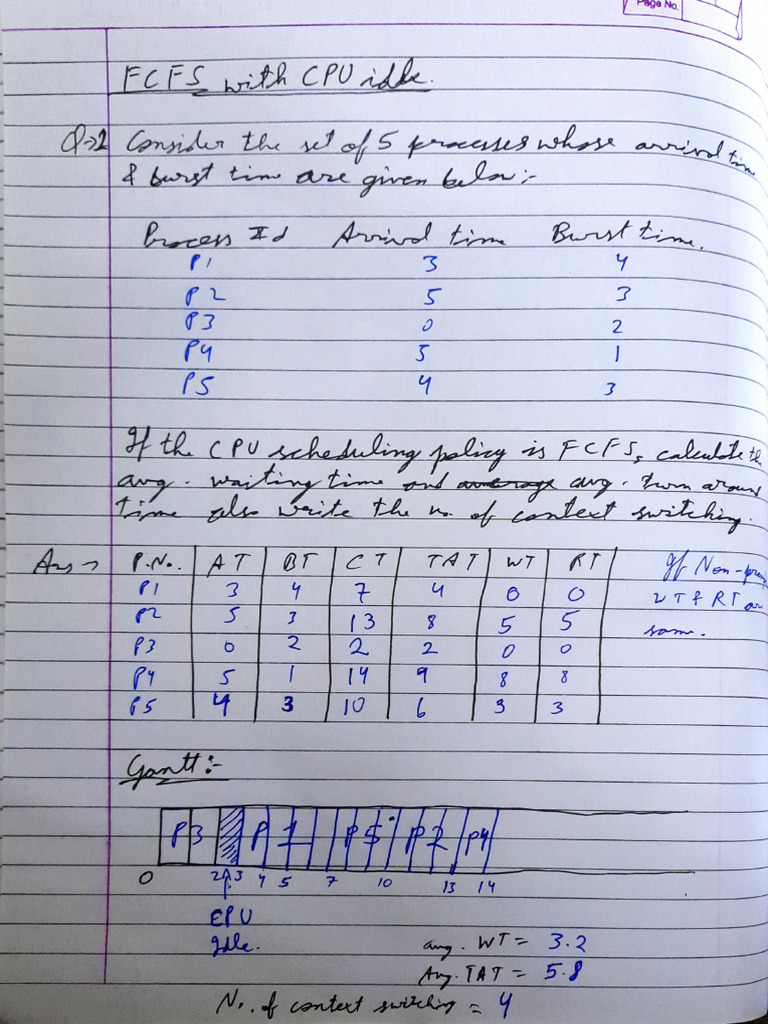 Page No.
FCFS with CPU idle.
Q→2 Consider the set of 5 processes whose arrival time
& burst time are given below :-
Process Id Arrival time Burst time.
P1 3 4
P2 5 3
P3 0 2
P4 5 1
P5 4 3
If the CPU scheduling policy is FCFS, calculate the
avg. waiting time and average avg. turn around
time also write the no. of context switching.
Ans → P.No. AT BT CT TAT WT RT If Non-pree
P1 3 4 7 4 0 0 WT & RT are
P2 5 3 13 8 5 5 same.
P3 0 2 2 2 0 0
P4 5 1 14 9 8 8
P5 4 3 10 6 3 3
Gantt :-
P3 P1 P5 P2 P4
0 2 3 4 5 7 10 13 14
CPU
Idle.
avg. WT = 3.2
Avg. TAT = 5.8
No. of context switching = 4